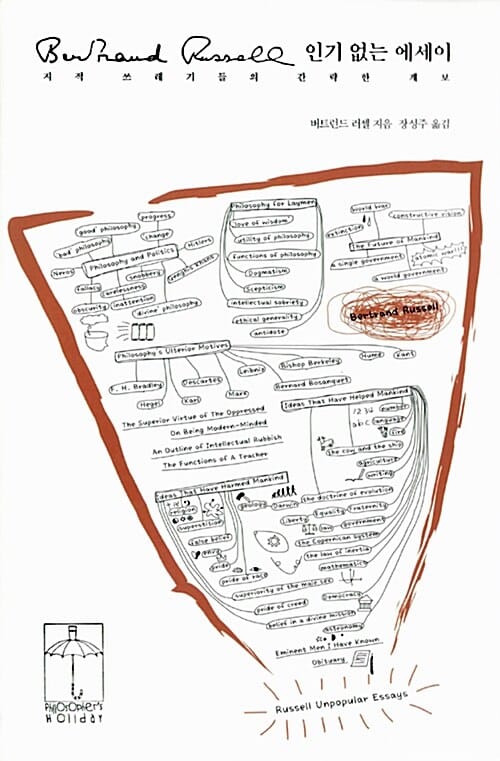 Bertrand Russell 인기 없는 에세이
지적 쓰레기들의 간략한 계보
버트런드 러셀 지음 장성주 옮김
Philosophy and Politics
good philosophy
progress
change
bad philosophy
Hitlers
Neros
snobbery
fallacy
carelessness
obscurity
inattention
divine philosophy
Philosophy for Laymen
love of wisdom
utility of philosophy
functions of philosophy
Dogmatism
Scepticism
intellectual sobriety
ethical generality
antidote
world war
constructive vision
extinction
The Future of Mankind
a single government
atomic war!!
a world government
Bertrand Russell
Philosophy's Ulterior Motives
F. H. Bradley
Hegel
Descartes
Karl
Marx
Leibniz
Bishop Berkeley
Bernard Bosanquet
Hume
Kant
The Superior Virtue of The Oppressed
On Being Modern-Minded
An Outline of Intellectual Rubbish
The Functions of A Teacher
Ideas That Have Helped Mankind
1234
number
abc
language
fire
the cow and the ship
agriculture
writing
the doctrine of evolution
Equality
fraternity
liberty
law
government
the Copernican system
the law of inertia
mathematics
Democracy
astronomy
Ideas That Have Harmed Mankind
religion
superstition
false belief
envy
pride
geology
Darwin
pride of race
superiority of the male sex
pride of creed
belief in a divine mission
Eminent Men I Have Known
Obituary
Russell Unpopular Essays
PHILOSOPHER'S
HOLIDAY